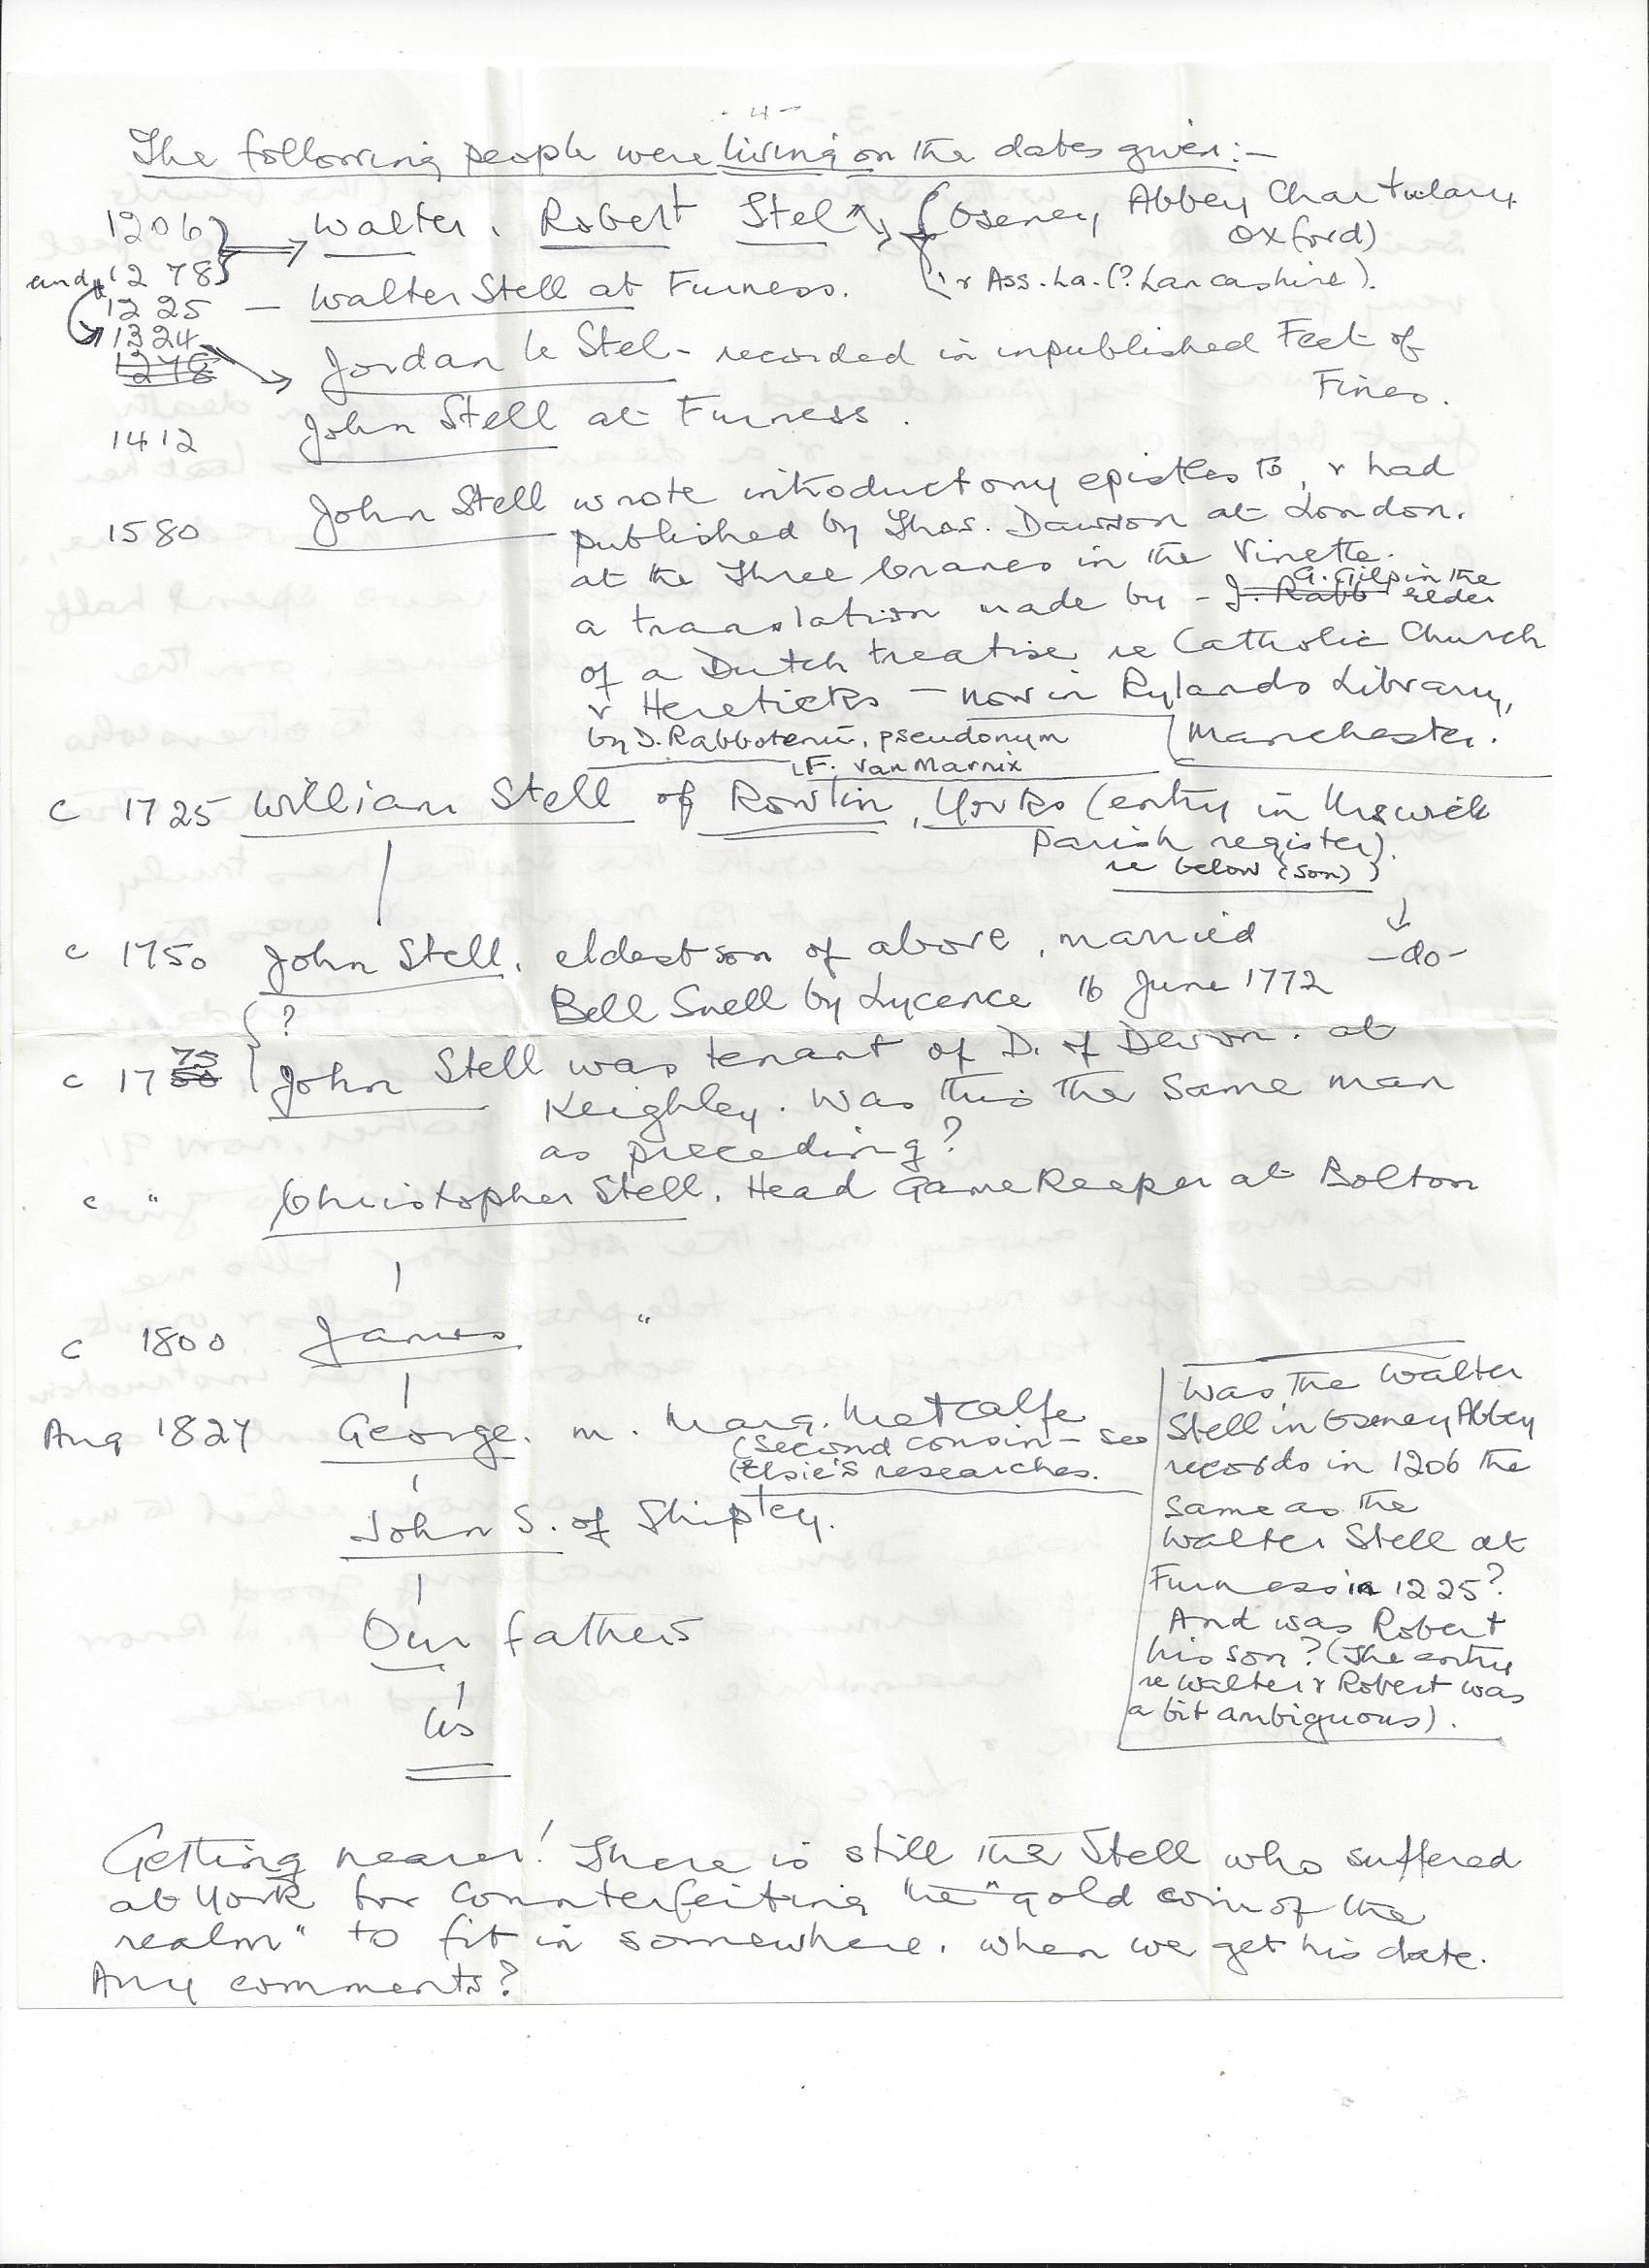 - 4 -
The following people were living on the dates given:-
1206} Walter, Robert Stel {Oseney Abbey Chartulary
Oxford)
and 1278} & Ass. La. (? Lancashire).
1225 — Walter Stell at Furness.
1324
1278
Jordan le Stel - recorded in unpublished Feet of
Fines.
1412 John Stell at Furness.
1580 John Stell wrote introductory epistles to, & had
published by Thos. Dawson at London.
at the Three Cranes in the Vinette.
a translation made by - J. Rabb G. Gilpin the elder
of a Dutch treatise re Catholic Church
& Hereticks — now in Rylands Library,
Manchester.
by D. Rabbotenu, pseudonym
F. Van Marnix
c 1725 William Stell of Rowlin, Yorks (entry in Urswick
Parish register).
re below (son) )
c 1750 John Stell, eldest son of above, married -do-
Bell Snell by Lycence 16 June 1772
{?
c 17 50 75 John Stell was tenant of D. of Devon. at
Keighley. Was this the same man
as preceding?
c " Christopher Stell, Head Gamekeeper at Bolton
c 1800 James "
Aug 1827 George. m. Marg. Metcalfe
(second cousin - see
(Elsie's researches.
John S. of Shipley.
Our fathers
Us
Was the Walter
Stell in Oseney Abbey
records in 1206 the
same as the
Walter Stell at
Furness in 1225?
And was Robert
his son? (The entry
re Walter & Robert was
a bit ambiguous).
Getting nearer! There is still the Stell who suffered
at York for counterfeiting "the" gold coin of the
realm" to fit in somewhere, when we get his date.
Any comments?